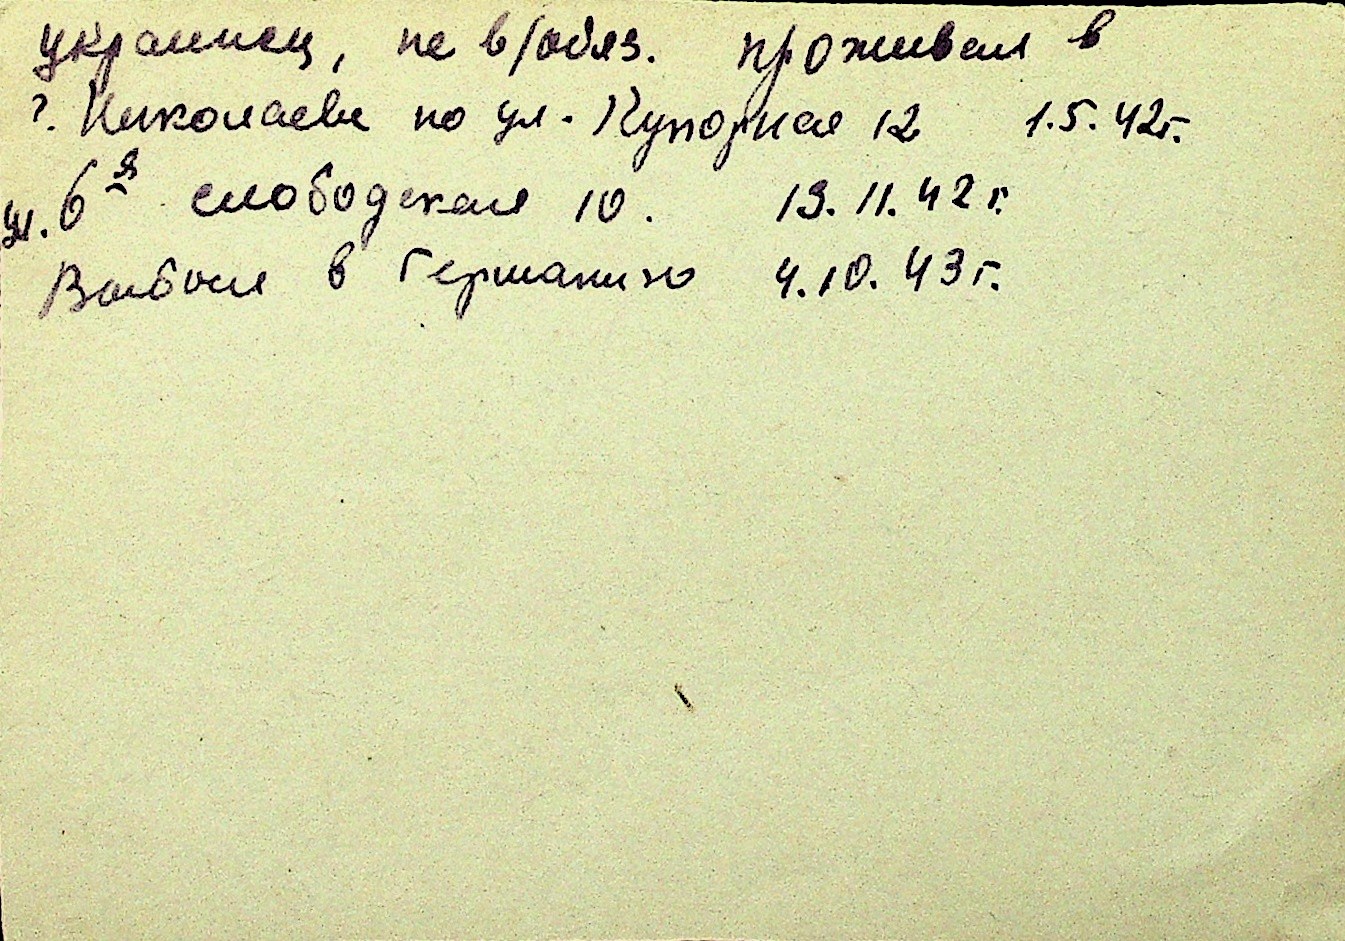 украинец, не в/обяз. проживал в
г. Николаеве по ул. Купорная 12 1.5.42г.
ул. 6я слободская 10. 13.11.42г.
Выбыл в Германию 4.10.43г.